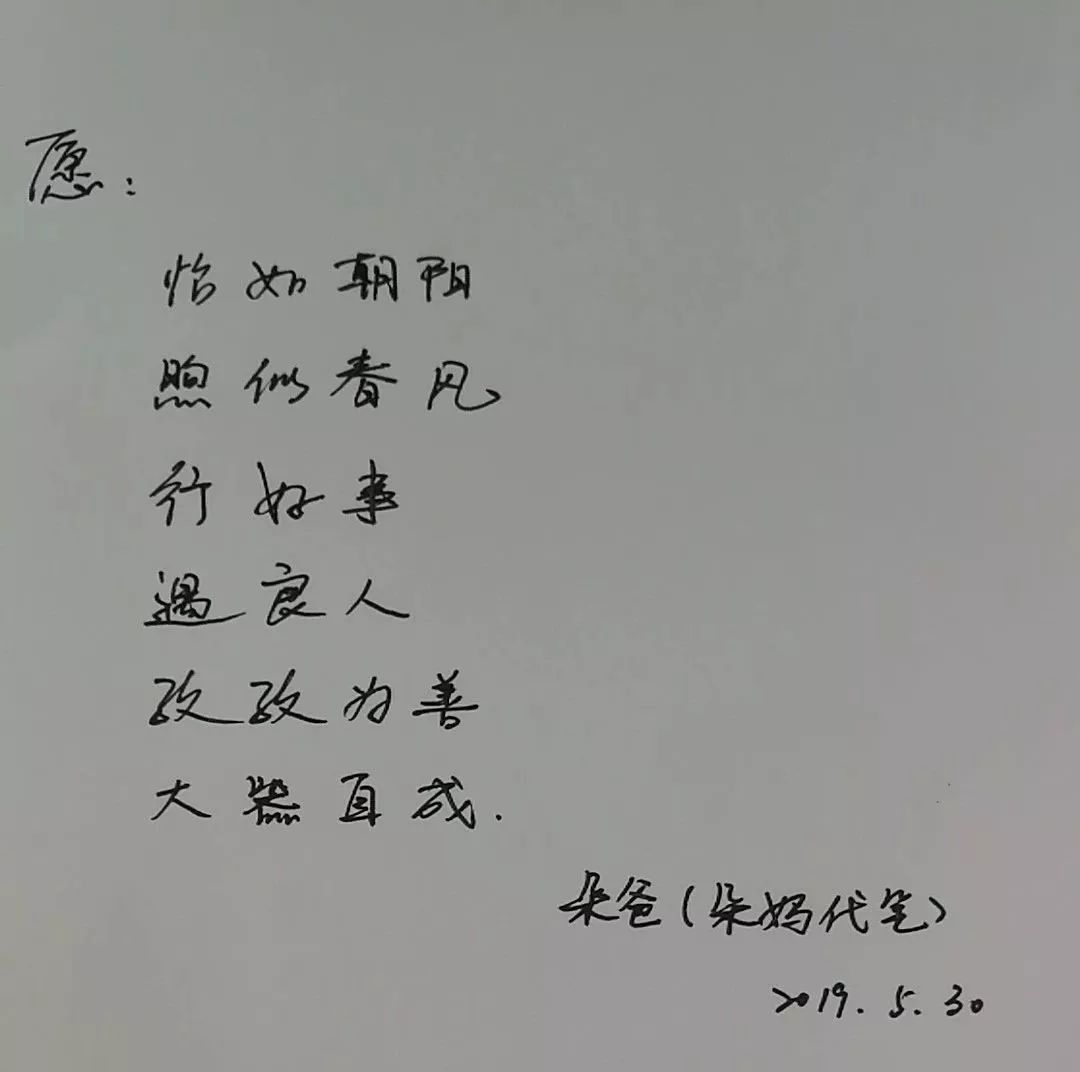 愿：
怡如朝阳
煦似春风
行好事
遇良人
孜孜为善
大器自成.
朵爸(朵妈代笔)
2019.5.30